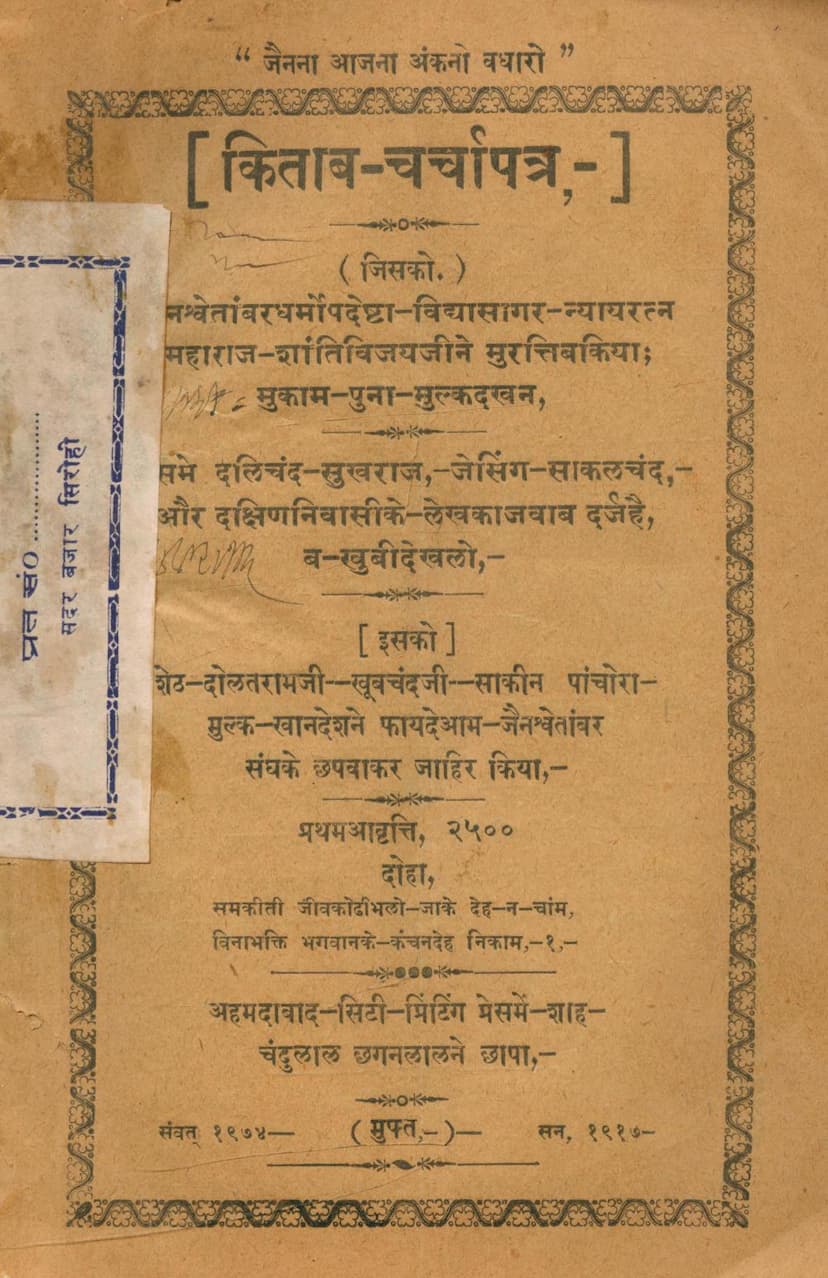 “ जैनना आजना अंकनो वधारो ”
[ किताब-चर्चापत्र,- ]
( जिसको. )
नश्वेतांबरधर्मोपदेष्टा-विद्यासागर-न्यायरत्न
महाराज-शांतिविजयजीने मुरत्तिबकिया;
मुकाम-पुना-मुल्कदखन,
समे दलिचंद-सुखराज,-जेसिंग-साकलचंद,-
और दक्षिणनिवासीके-लेखकाजवाब दर्जहै,
ब-खुबीदेखलो,-
[ इसको ]
शेठ-दोलतरामजी-खूबचंदजी-साकीन पांचोरा-
मुल्क-खानदेशने फायदेआम-जैनश्वेतांबर
संघके छपवाकर जाहिर किया,-
प्रथमआवृत्ति, २५००
दोहा,
समकीती जीवकोढीभलो-जाके देह-न-चांम,
विनाभक्ति भगवानके-कंचनदेह निकाम,-१,-
अहमदावाद-सिटी-प्रिंटिंग प्रेसमें-शाह-
चंदुलाल छगनलालने छापा,-
संवत् १९७४- ( मुफ्त,- )- सन, १९१७-
प्रत सं० ..................
सदर बजार सिरोही